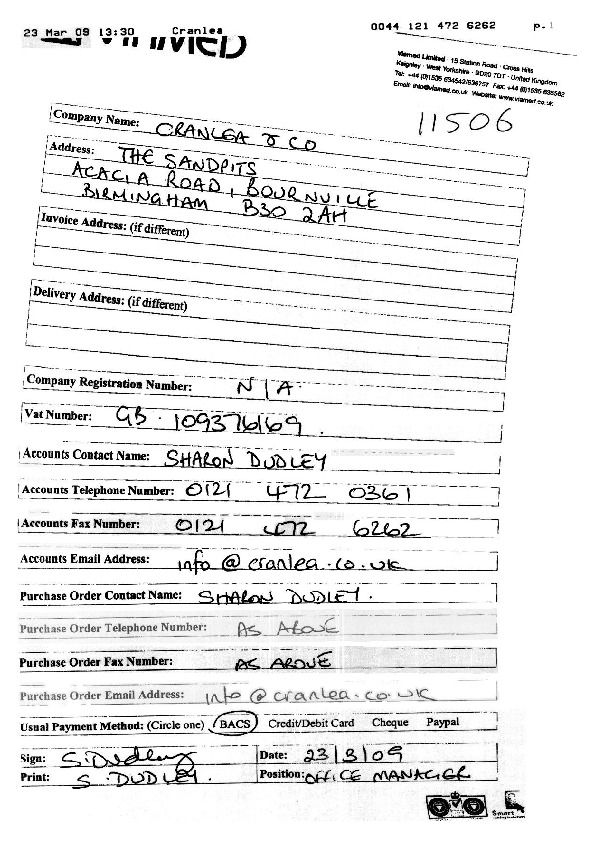 23 Mar 09 13:30 Cranlea 0044 121 472 6262 p.1
VIAMED
Viamed Limited · 15 Station Road · Cross Hills
Keighley · West Yorkshire · BD20 7DT · United Kingdom
Tel: +44 (0)1535 634542/636757 Fax: +44 (0)1535 635582
Email: info@viamed.co.uk Website: www.viamed.co.uk
11506
Company Name: CRANLEA & CO
Address: THE SANDPITS
ACACIA ROAD, BOURNVILLE
BIRMINGHAM B30 2AH
Invoice Address: (if different)
Delivery Address: (if different)
Company Registration Number: N/A
Vat Number: GB 109376169.
Accounts Contact Name: SHARON DUDLEY
Accounts Telephone Number: 0121 472 0361
Accounts Fax Number: 0121 472 6262
Accounts Email Address: info@cranlea.co.uk
Purchase Order Contact Name: SHARON DUDLEY.
Purchase Order Telephone Number: AS ABOVE
Purchase Order Fax Number: AS ABOVE
Purchase Order Email Address: info@cranlea.co.uk
Usual Payment Method: (Circle one) BACS Credit/Debit Card Cheque Paypal
Sign: S. Dudley Date: 23/3/09
Print: S. DUDLEY. Position: OFFICE MANAGER
Smart